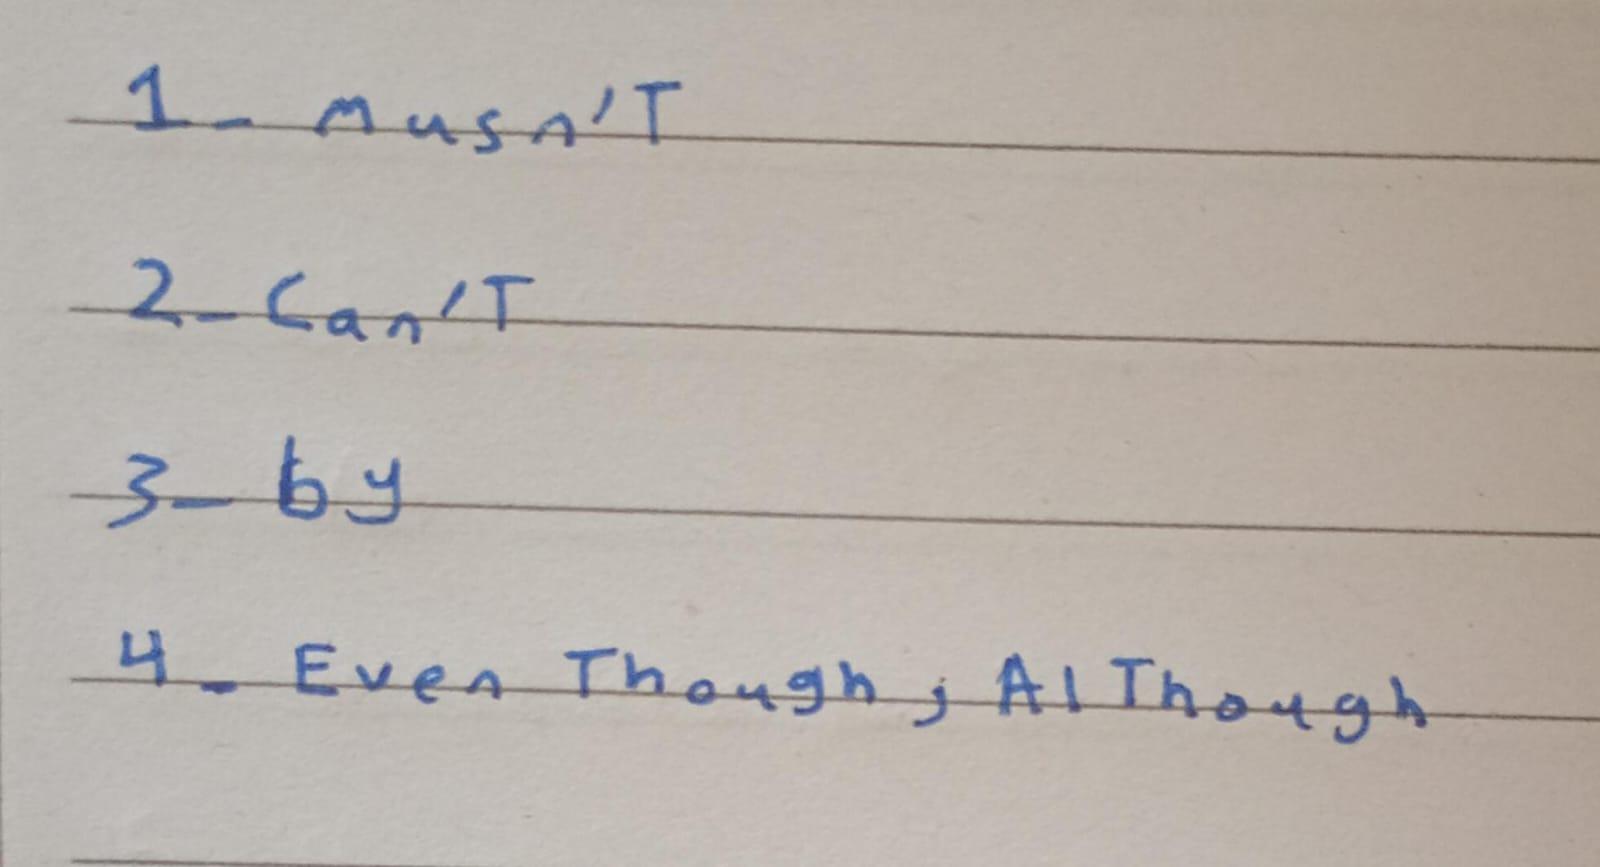 1- Musn'T
2- Can'T
3- by
4- Even Though, AlThough